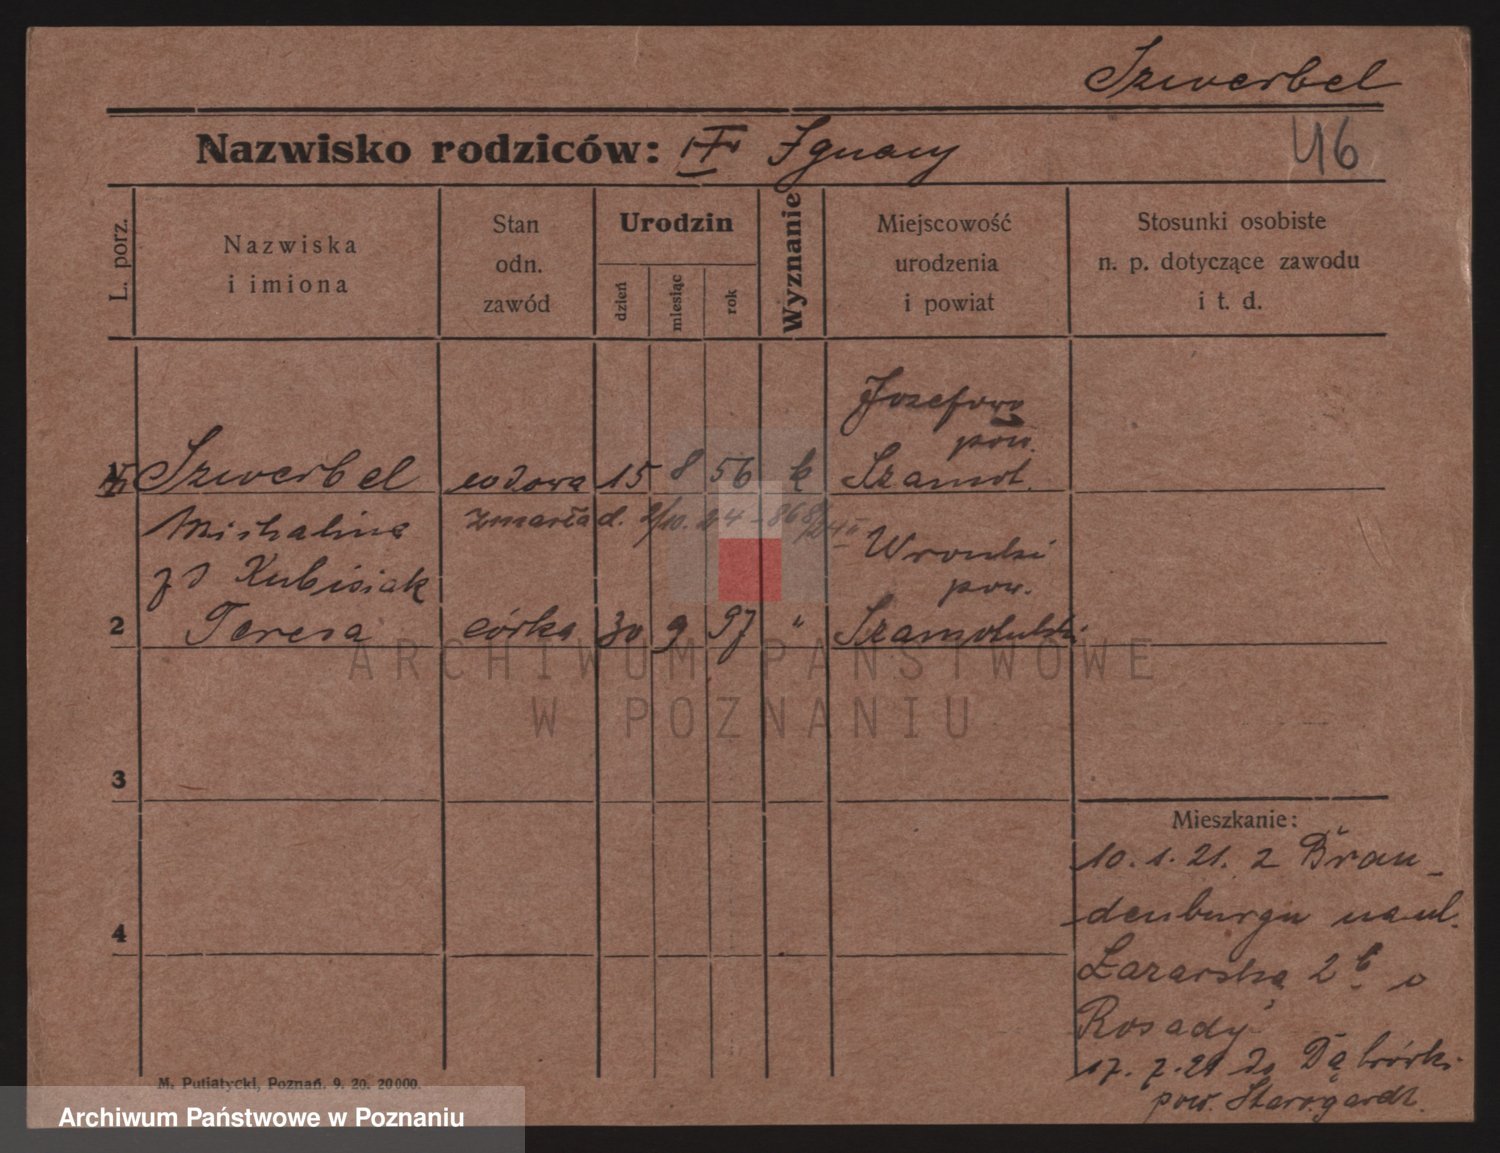 Szwerbel
Nazwisko rodziców: Ignacy
46
L. porz.
Nazwiska
i imiona
Stan
odn.
zawód
Urodzin
dzień
miesiąc
rok
Wyznanie
Miejscowość
urodzenia
i powiat
Stosunki osobiste
n. p. dotyczące zawodu
i t. d.
Józefowo
pow.
Szwerbel wdowa 15 8 56 k Szamot.
Michalina zmarła d.
zd Kubisiak
Wronki
pow.
2 Teresa córka 30 9 97 " Szamotulski
ARCHIWUM PAŃSTWOWE
W POZNANIU
3
4
Mieszkanie:
10. 1. 21. z Bran-
denburgu na ul.
Łazarską 2 b o
Rosady
17. 7. 21 do Dąbrówki
pow. Starogardt.
M. Putiatycki, Poznań. 9. 20. 20000.
Archiwum Państwowe w Poznaniu